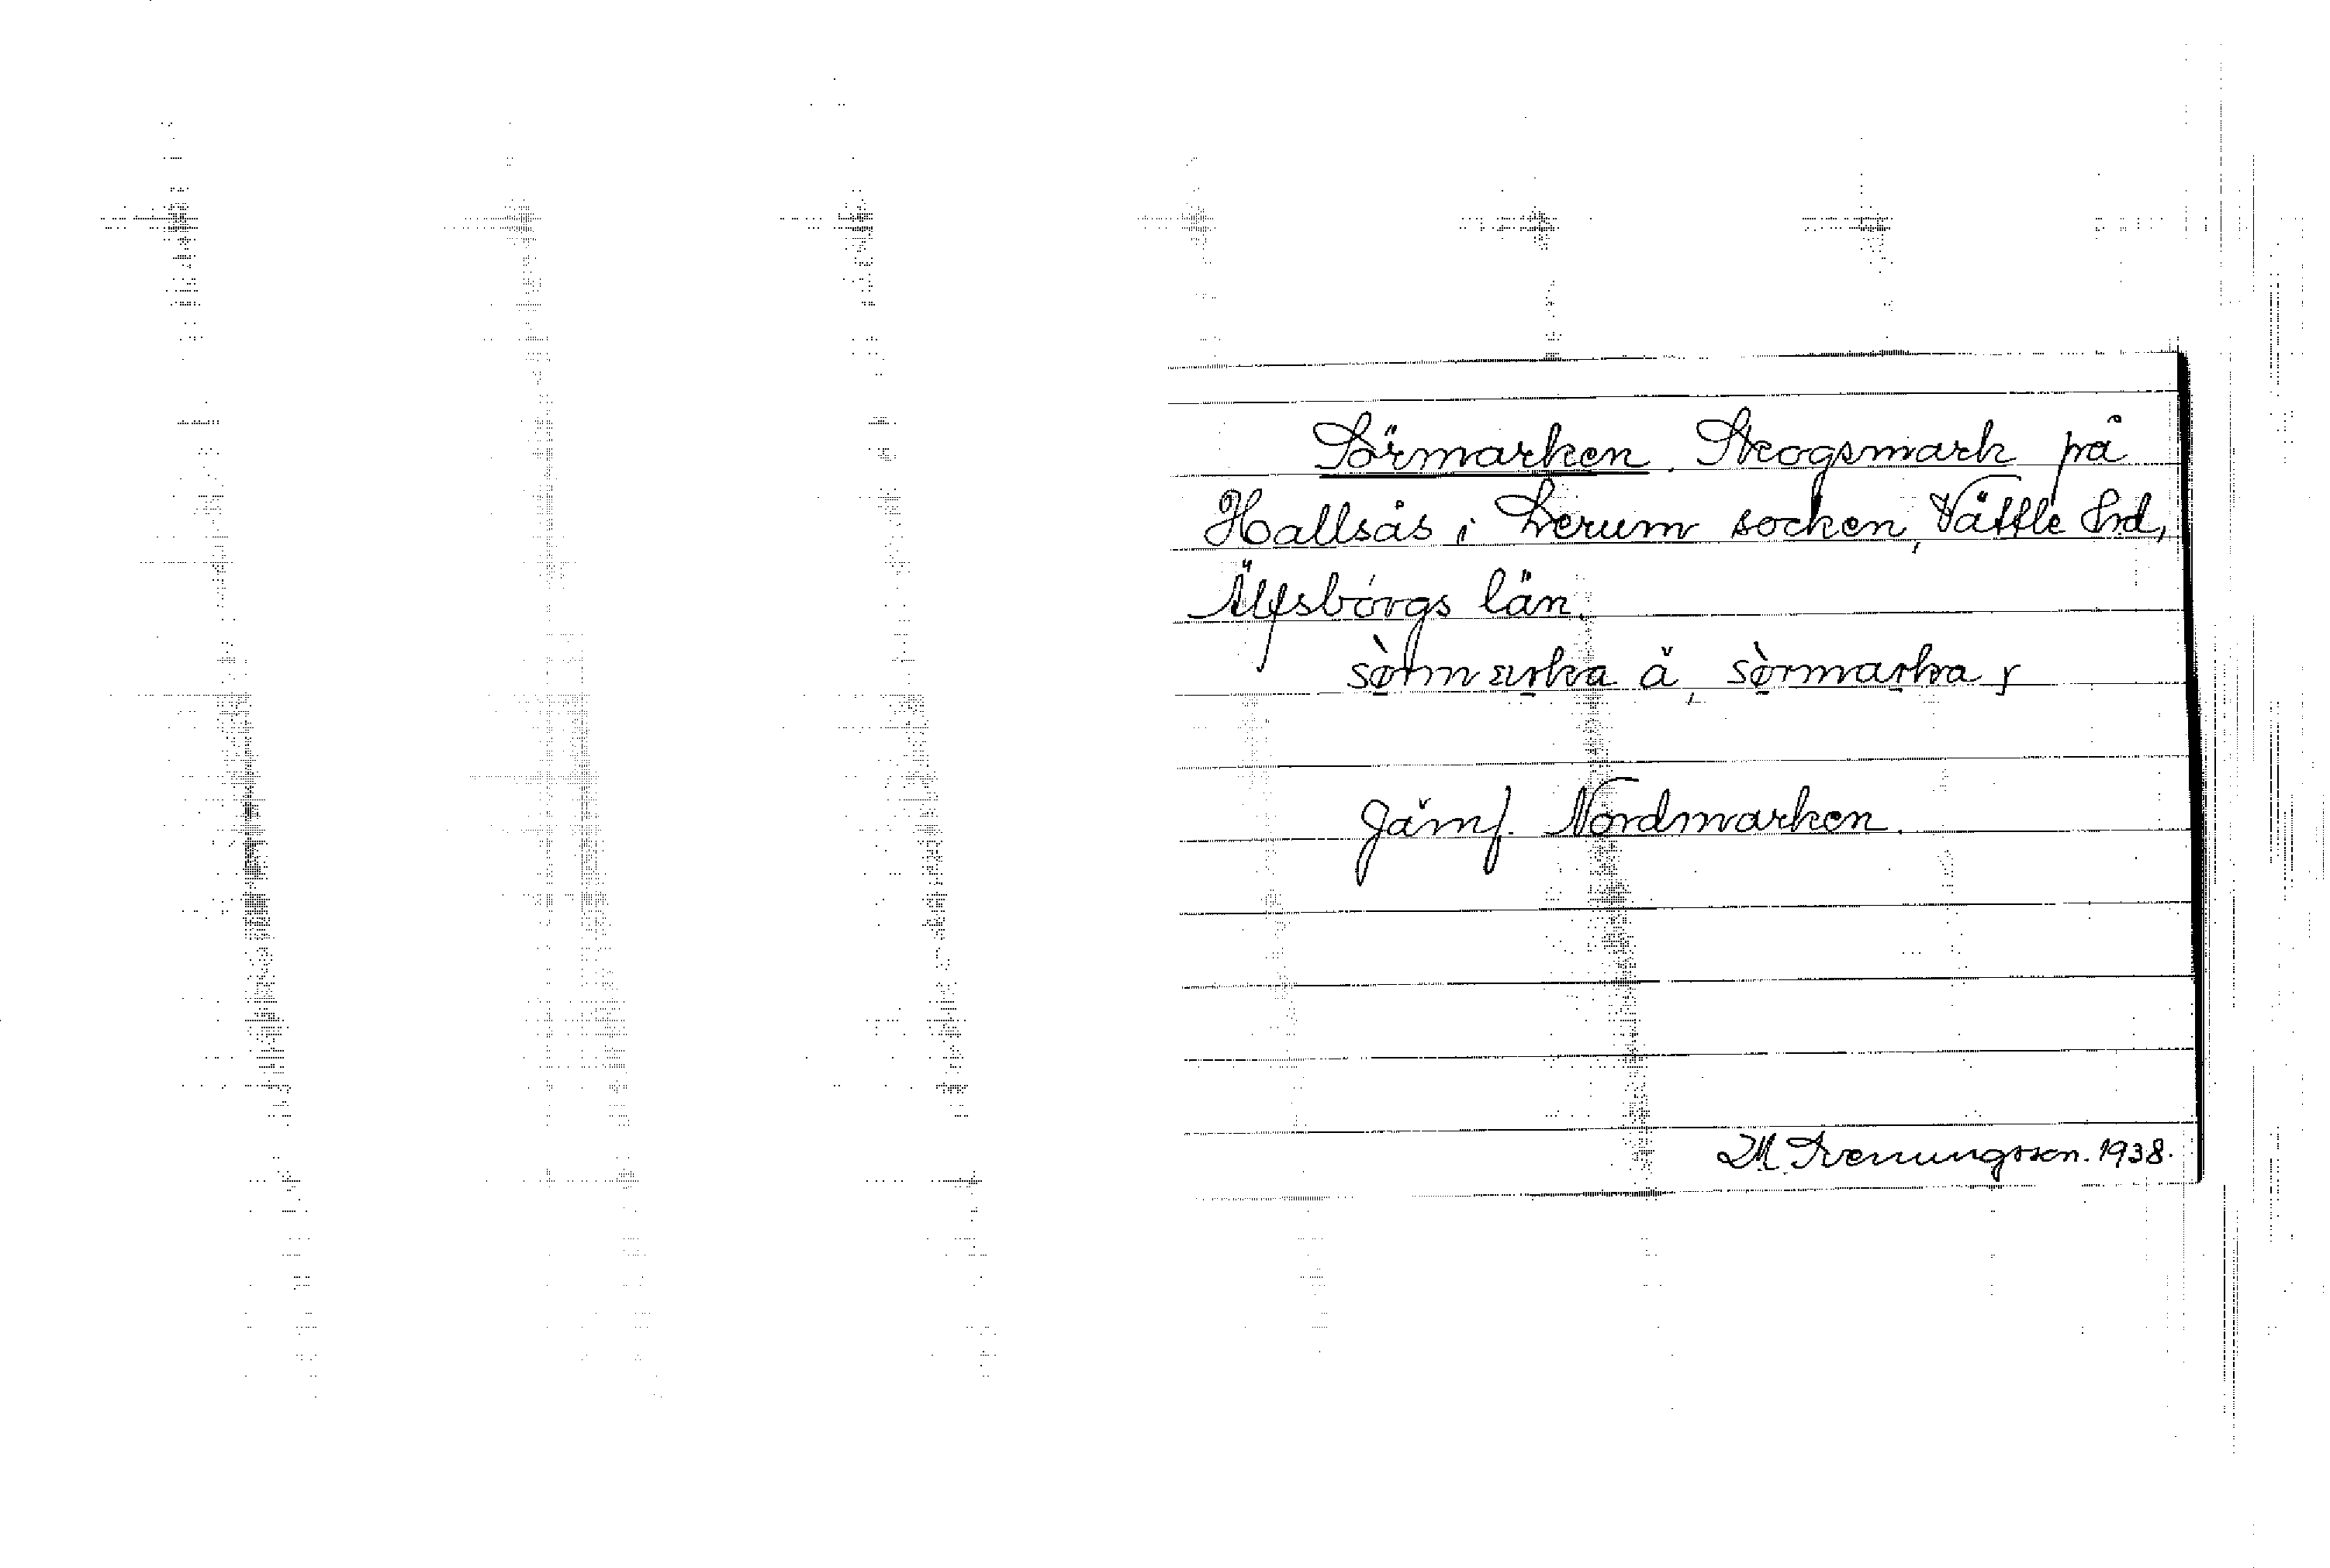 Sörmarken. Skogsmark på
Hallsås i Lerum socken, Vättle hd,
Älfsborgs län.
sòrmarka å, sòrmarka y
Jämf. Nordmarken.
M. Svenungsson. 1938.